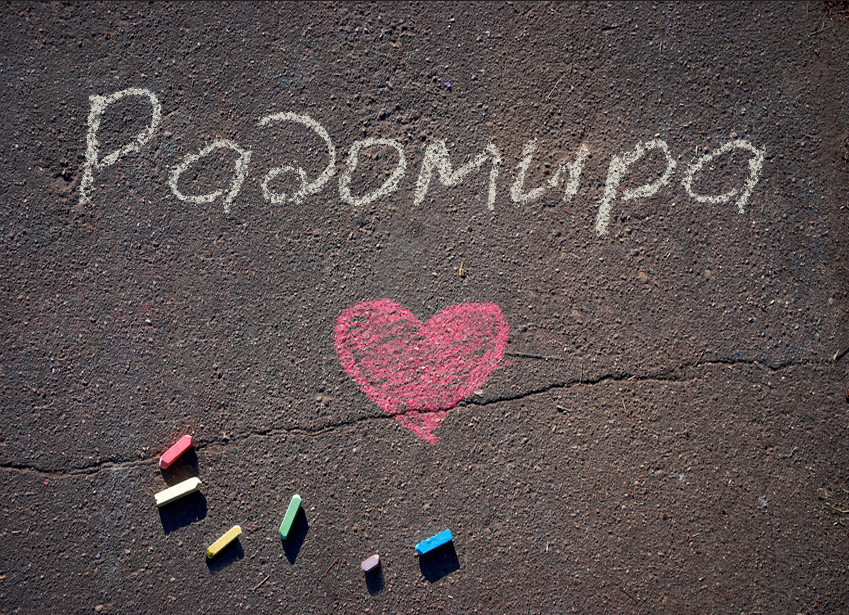 Радомира